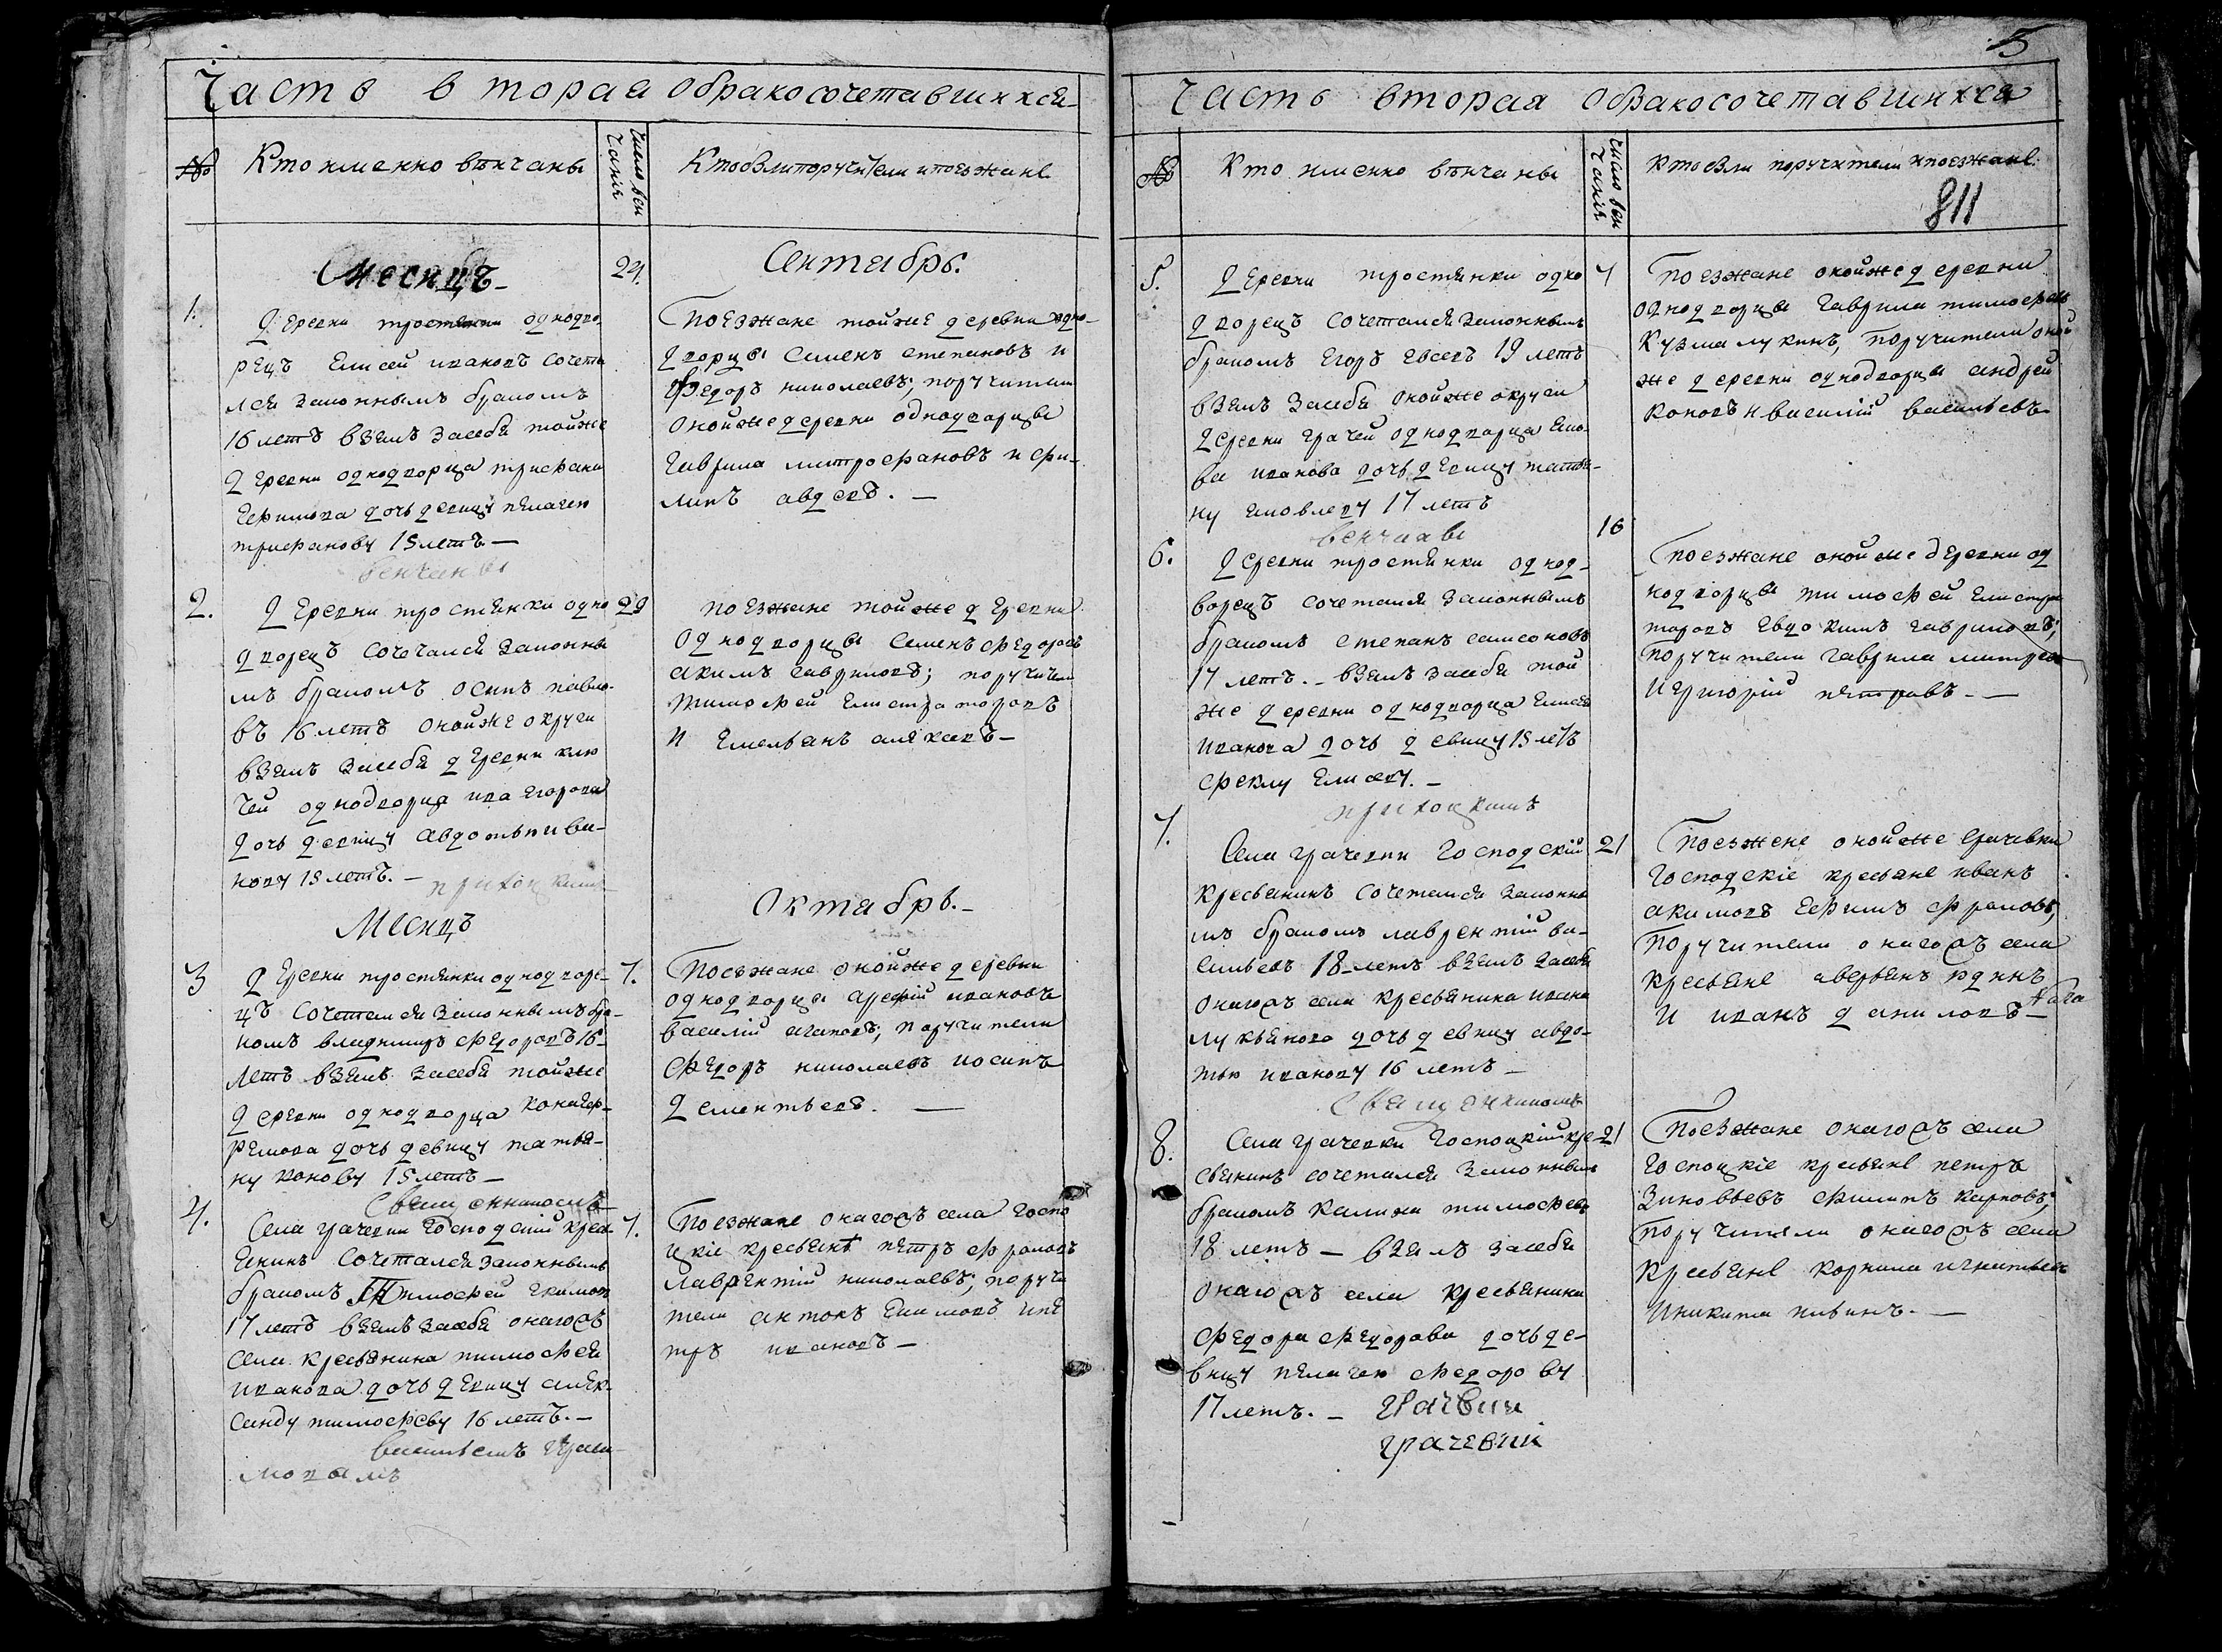 Часть вторая обракосочетавшихся
№
Кто именно вѣнчаны
Число вен
чанія
Кто были поручители и поезжане
Месицъ
24.
Сентябрь.
1.
Деревни тростянки однодво
рецъ Елисей ивановъ сочета
лся законнымъ бракомъ
16 летъ взялъ засебя тойже
деревни однодворца трифана
Ефимова дочь девицу пелагею
трифанову 15 летъ. —
венчаны
Поезжане тойже деревни одно-
дворцы Семенъ степановъ и
Федоръ николаевъ; поручители
онойже деревни однодворцы
гаврила митрофановъ и фи-
липъ авдеевъ. —
2.
Деревни тростянки одно
дворецъ сочетался законны
мъ бракомъ осипъ павло-
въ 16 летъ онойже округи
взялъ засебя деревни клю
чей однодворца ива егорова
дочь девицу авдотью ива-
нову 15 летъ. —
приходскимъ
29
поезжане тойже деревни
однодворцы Семенъ федоровъ
акимъ гавриловъ; поручители
тимофей Елистраторовъ
и Емельянъ алексеевъ —
Месицъ
Октябрь. —
3
Деревни тростянки однодворе-
цъ сочетался законнымъ бра-
комъ владимиръ федоровъ 16
летъ взялъ засебя тойже
деревни однодворца
дочь девицу татья-
ну конову 15 летъ —
священникомъ
7.
Поезжане онойже деревни
однодворцы арефій ивановъ
василій агаповъ; поручители
федоръ николаевъ иосипъ
дементьевъ. —
4.
Села грачевки господский крест
янинъ сочетался законнымъ
бракомъ тимофей екимов
17 летъ взялъ засебя онагожъ
села крестьянина тимофея
иванова дочь девицу алек-
санду тимофеву 16 летъ. —
васильемъ гераси-
мовымъ
7.
Поезжане онагожъ села госпо
цкіе крестьяне петръ фроловъ
Лаврентий николаевъ; поручи
тели антонъ Екимовъ ипе
тръ ивановъ —
5
Часть вторая обракосочетавшихся
№
Кто именно вѣнчаны
Число вен
чанія
Кто были поручители и поезжане
811
5.
Деревни тростянки одно
дворецъ сочетался законнымъ
бракомъ Егоръ евсеевъ 19 летъ
взялъ засебя онойже округи
деревни грачей однодворца
иванова дочь девицу татья-
ну яковлеву 17 летъ
венчаны
7
Поезжане онойже деревни
однодворцы гаврила тимофеевъ
Кузма лукинъ, поручители оной
же деревни однодворцы андрей
коновъ и василій васильевъ
6.
Деревни тростянки однод-
ворецъ сочетался законнымъ
бракомъ степанъ самсоновъ
17 летъ. — взялъ засебя той
же деревни однодворца Елисея
иванова дочь девицу 15 летъ
феклу Елисеву. —
приходскимъ
16
Поезжане онойже деревни од
нодворцы тимофей Елистра
торовъ Евдокимъ гавриловъ;
поручители гаврила митроф
и григорій петровъ. —
7.
Села грачевки господскій
крестьянинъ сочетался законны
мъ бракомъ лаврентій ва-
сильевъ 18 летъ взялъ засебя
онагожъ села крестьянина ивана
лукьянова дочь девицу авдо-
тью иванову 16 летъ —
священникомъ
21
Поезжене онойже грачевки
господскіе крестьяне иванъ
акимовъ Ефимъ фроловъ,
поручители онагожъ села
крестьяне аверьянъ
и иванъ даниловъ —
8.
Села грачевки господскій кре-
стьянинъ сочетался законнымъ
бракомъ калина тимофеев
18 летъ — взялъ засебя
онагожъ села крестьянина
федора федорова дочь де-
вицу пелагею федорову
17 летъ. —
грачевки
21
Поезжане онагожъ села
господкіе крестьяне петръ
Зиновьевъ филипъ карповъ;
поручители онагожъ села
крестьяне корнила игнатьевъ
иникита —